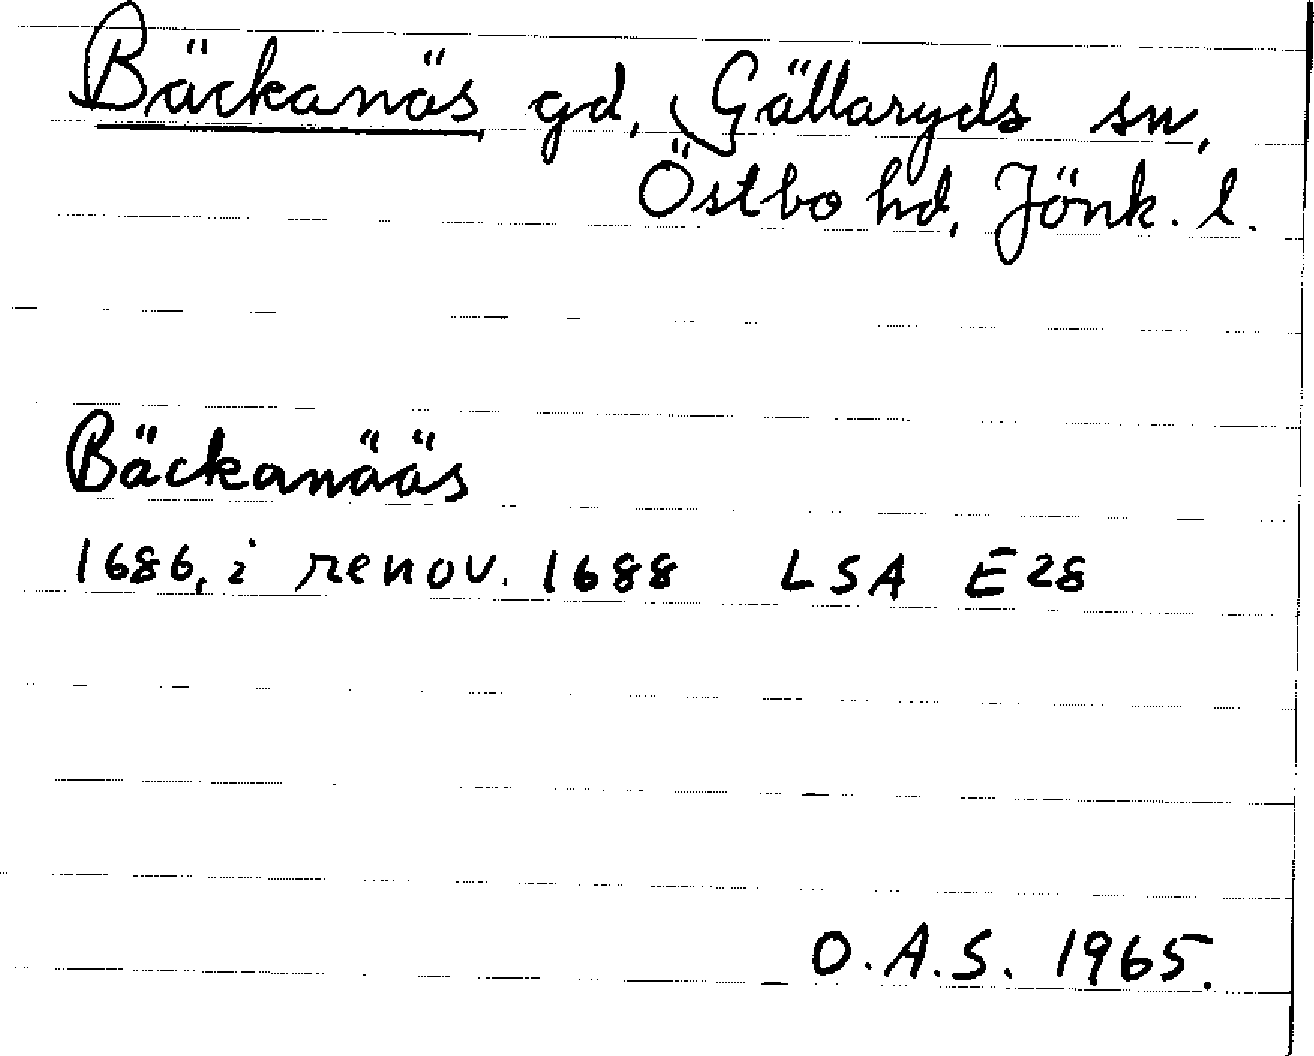 Bäckanäs gd, Gällaryds sn,
Östbo hd, Jönk. l.
Bäckanääs
1686, i renov. 1688 LSA E28
O.A.S. 1965.